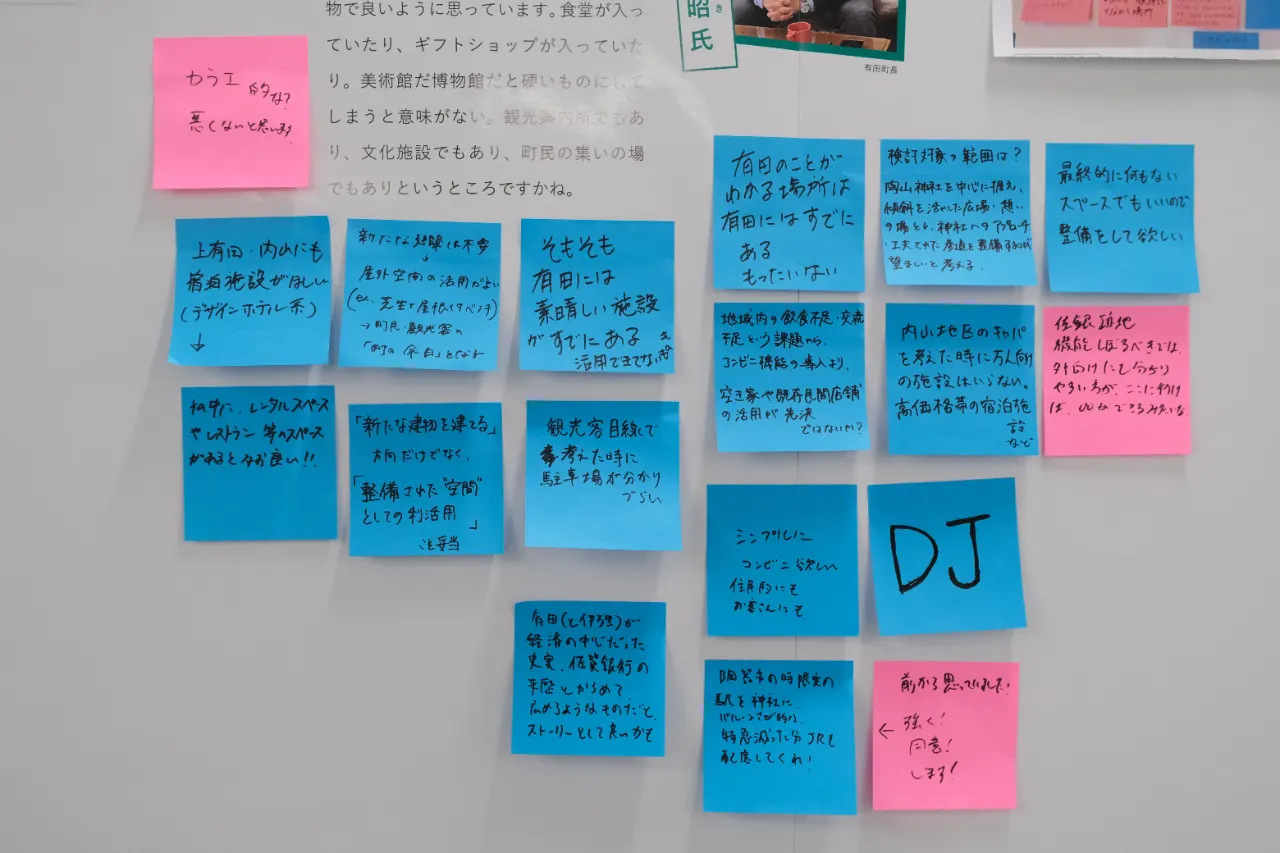 物で良いように思っています。食堂が入っ
ていたり、ギフトショップが入っていた
り。美術館だ博物館だと硬いものにして
しまうと意味がない。観光案内所でもあ
り、文化施設でもあり、町民の集いの場
でもありというところですかね。
昭氏
き
有田町長
カラエ 的な?
悪くないと思います
上有田・内山にも
宿泊施設がほしい
(デザインホテル系)
↓
新たな建築は不要
↓
屋外空間の活用がよい
(ex. 芝生+屋根+ベンチ)
→町民・観光客の
「町の余白」となる
そもそも
有田には
素晴しい施設
がすでにある
活用できてなさすぎ
有田のことが
わかる場所は
有田にはすでに
ある
もったいない
検討対象の範囲は?
陶山神社を中心に据え、
傾斜を活かした広場・憩い
の場とし、神社へのアプローチ
工夫された参道を整備するのが
望ましいと考える。
最終的に何もない
スペースでもいいので
整備をして欲しい
の中に、レンタルスペース
やレストラン等のスペース
があるとなお良い!!
「新たな建物を建てる」
方向だけでなく、
「整備された"空間"
としての利活用」
こそ妥当
観光客目線で
考えた時に
駐車場が分かり
づらい
地域内の飲食不足・交流
不足という課題から、
コンビニ機能の導入より、
空き家や既存民間店舗
の活用が先決
ではないか?
内山地区のキャパ
を考えた時に万人向け
の施設はいらない。
高価格帯の宿泊施
設
など
佐銀跡地
機能しぼるべきでは、
外向けだと分かり
やすいが、ここに行け
ば、〇〇ができるみたいな
シンプルに
コンビニ欲しい
住民的にも
お客さんにも
DJ
有田(と伊万里)が
経済の中心だった
史実、佐賀銀行の
来歴とからめて、
広めるようなものだと、
ストーリーとして良いかも
陶器市の時限定の
駅を神社に、
バルーンさが的な、
特急減った分JRも
配慮してくれ!
前から思っていました!
← 強く!
同意!
します!